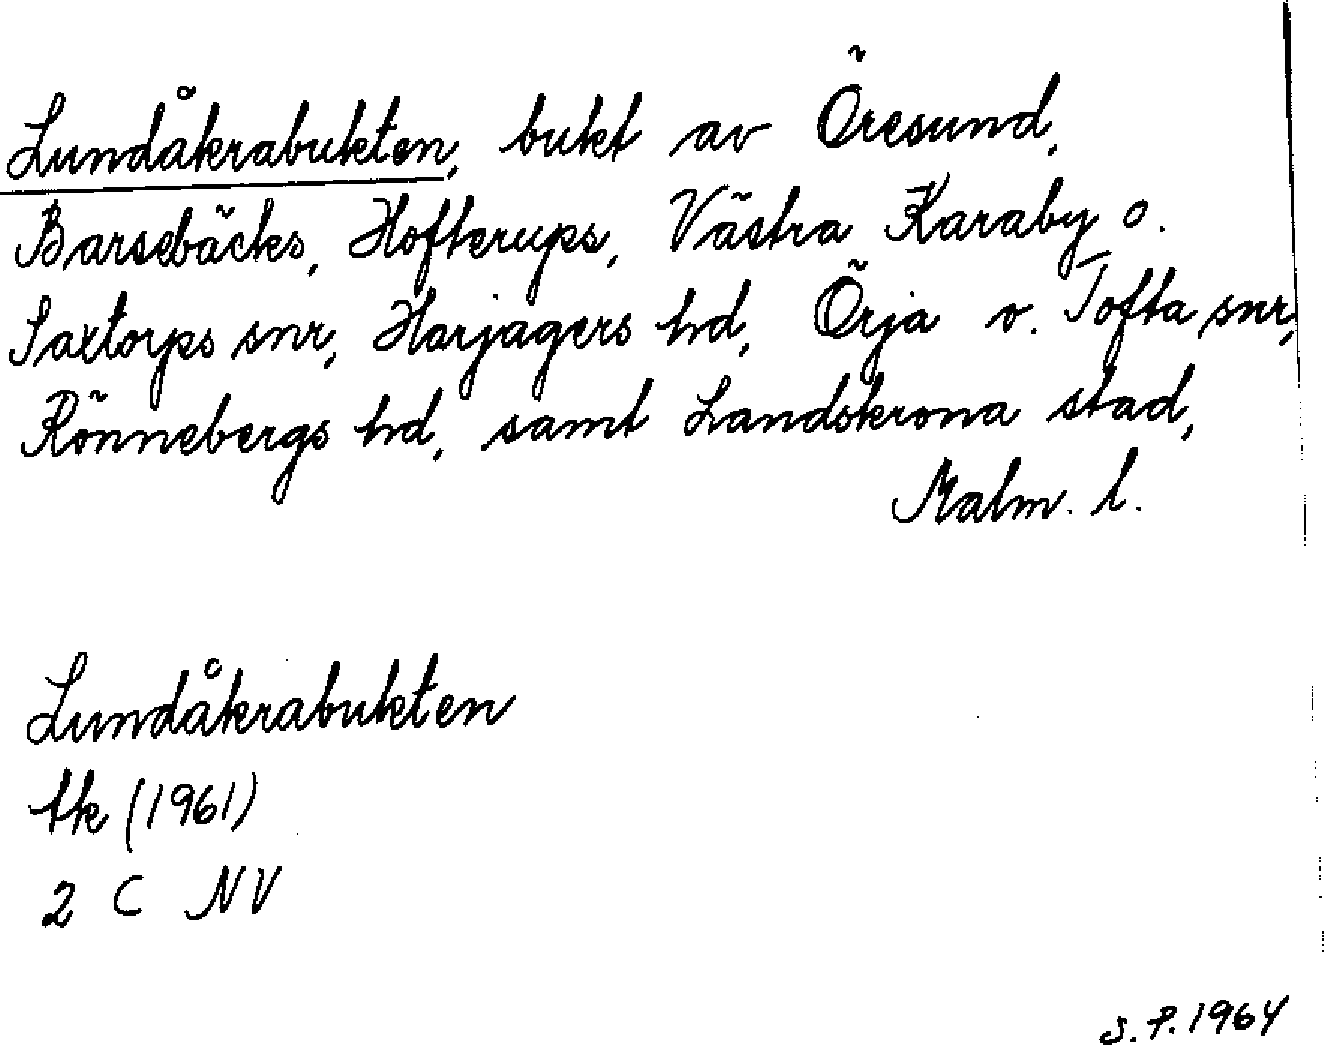 Lundåkrabukten, bukt av Öresund,
Barsebäcks, Hofterups, Västra Karaby o.
Saxtorps snr, Harjagers hd, Örja o. Tofta snr,
Rönnebergs hd, samt Landskrona stad,
Malm. l.
Lundåkrabukten
tk (1961)
2 C NV
S. P. 1964